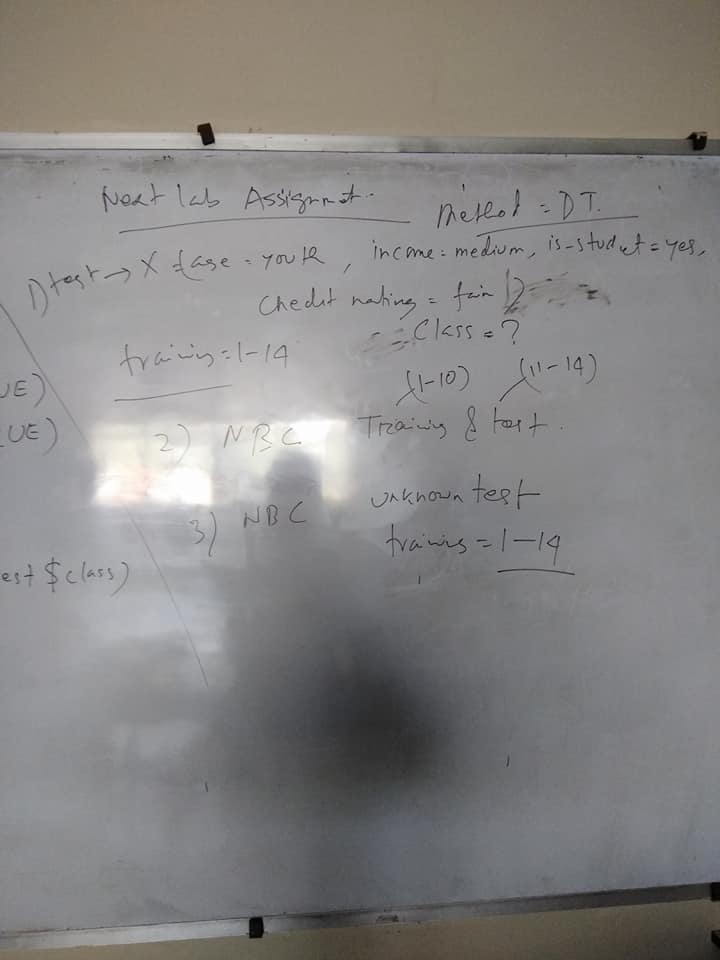 Next lab Assignmet.
Method = DT.
1) test → X {age = youth, income = medium, is-studet = yes,
Chedit rating = fair }
Class = ?
training = 1-14
(1-10) (11-14)
2) NBC Training & test.
3) NBC unknown test
training = 1-14
UE)
UE)
est $class)